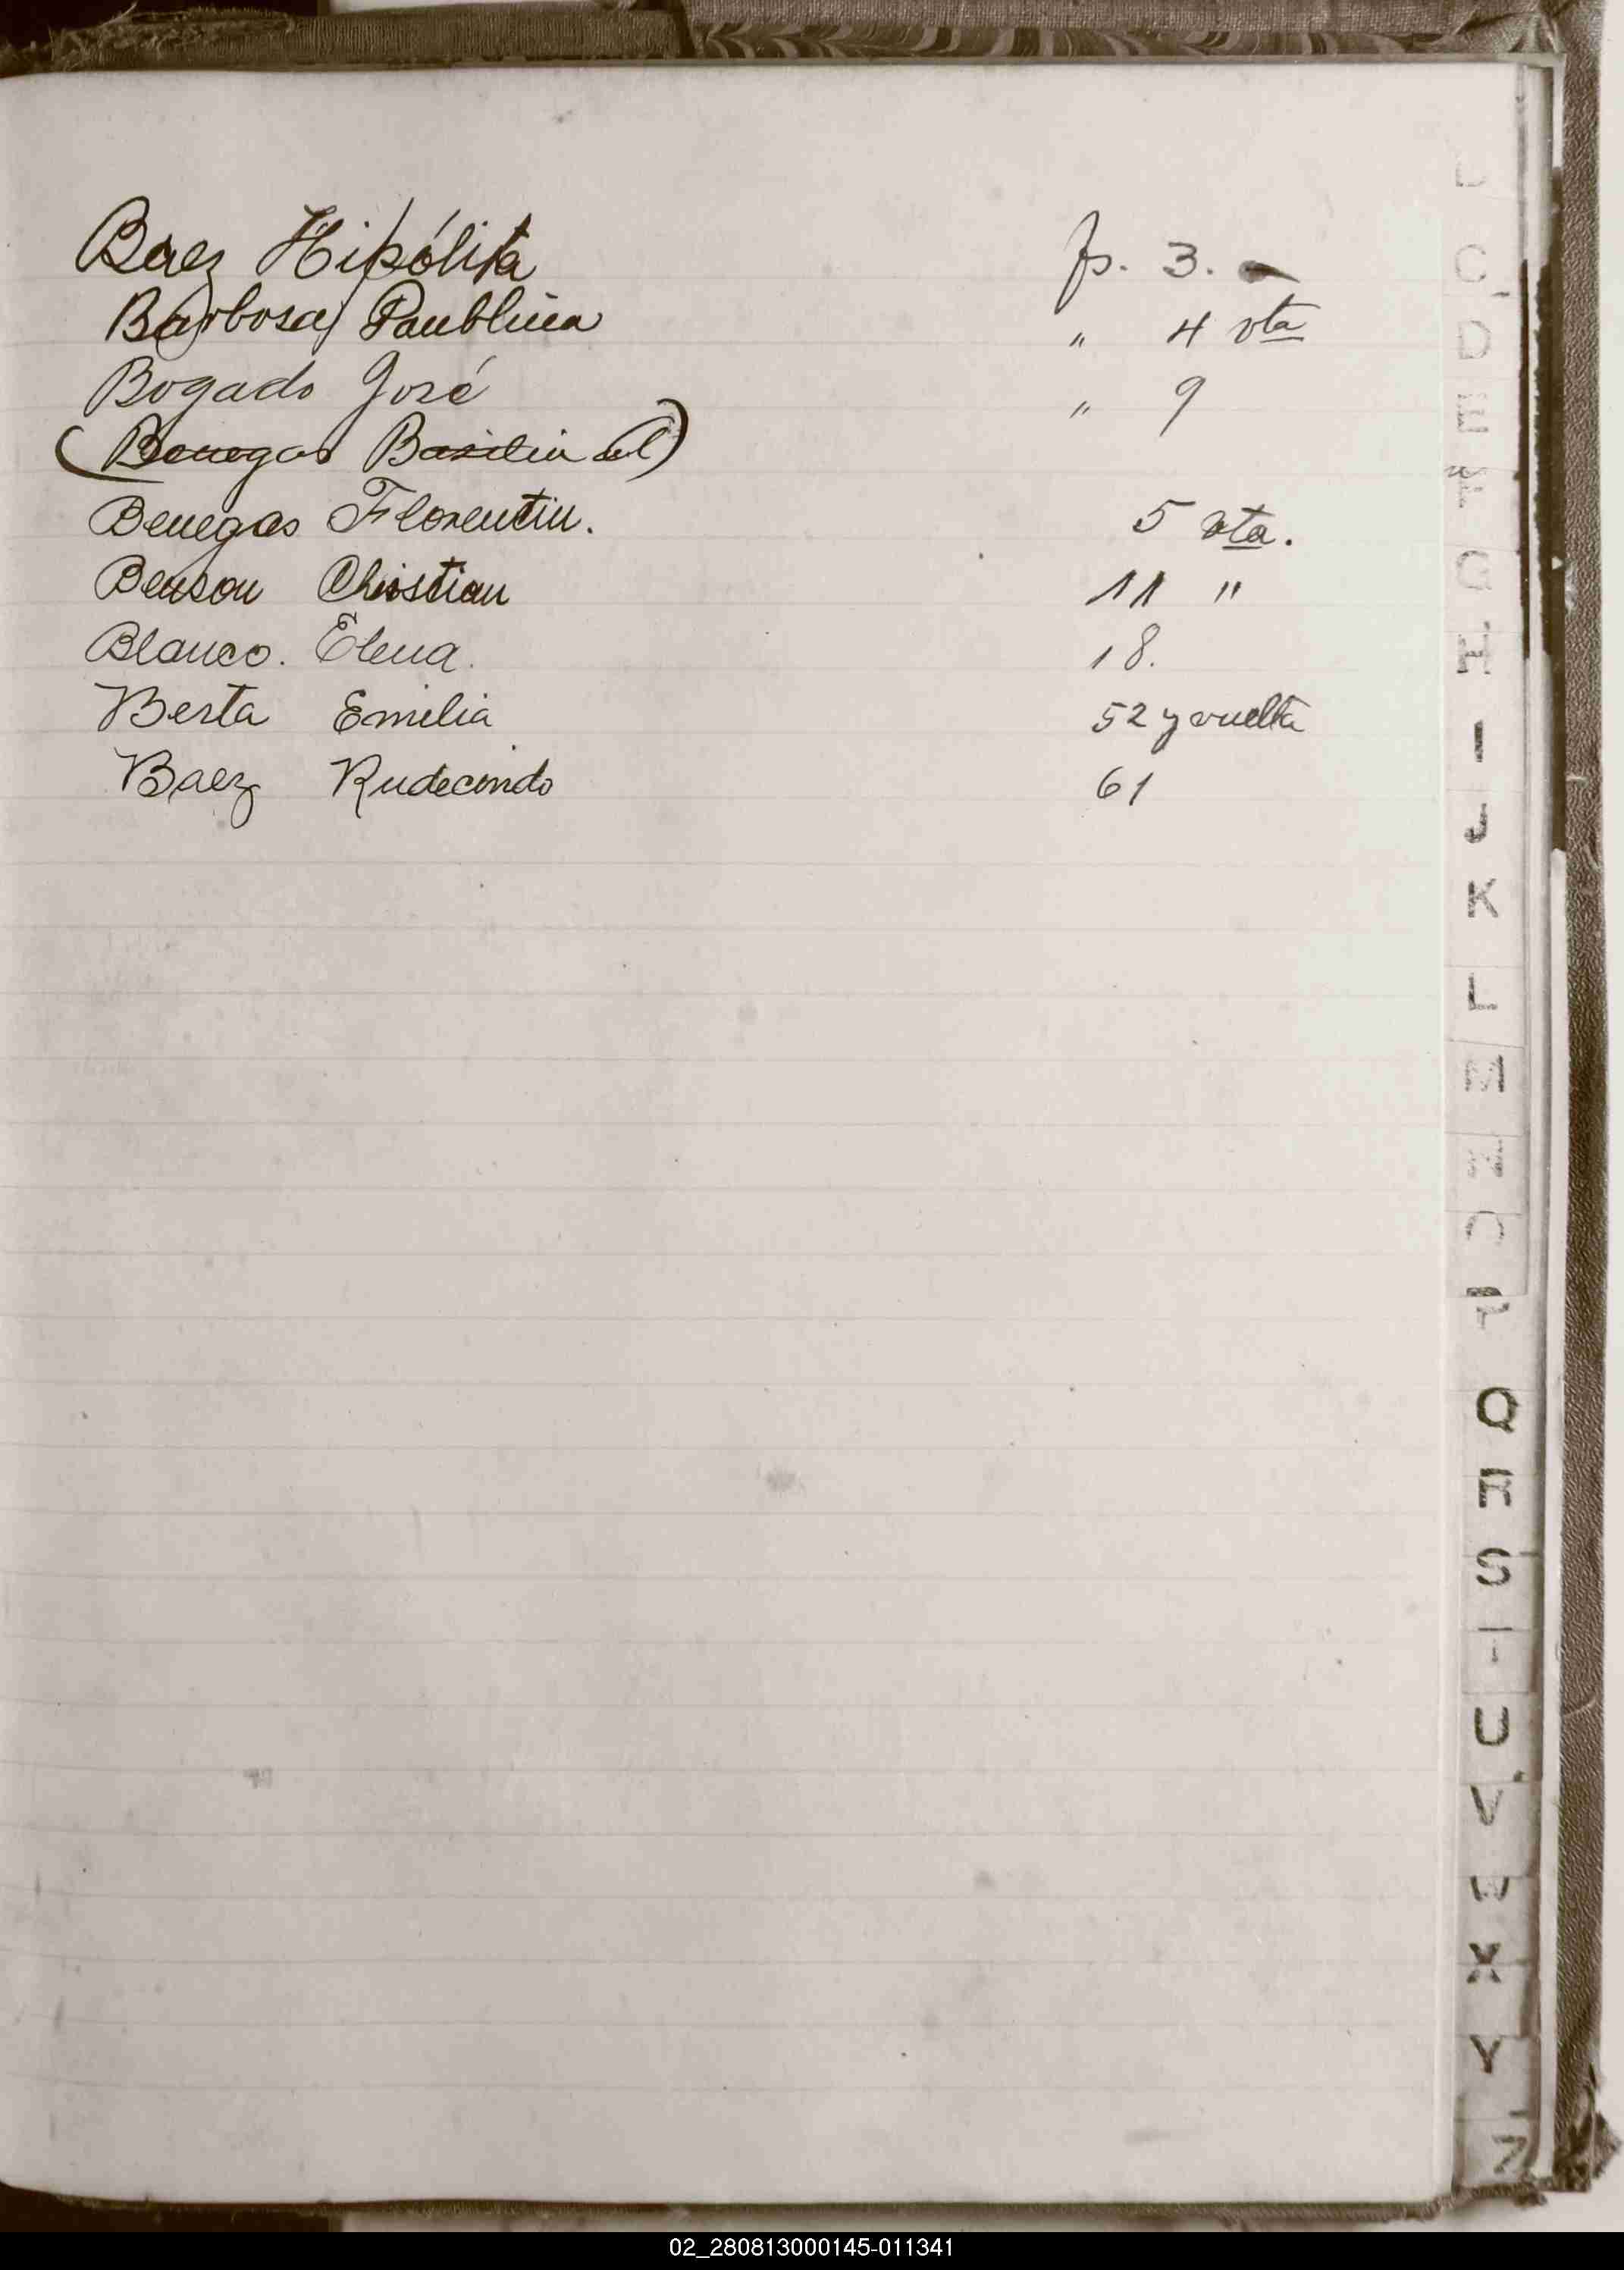 Baez Hipólita fs. 3. -
Barbosa Paublina " 4 vta
Bogado José " 9
(Benegas Basilia del)
Benegas Florentin. 5 vta.
Benson Christian 11 "
Blanco. Elena. 18.
Berta Emilia 52 y vuelta
Baez Rudecindo 61
C
D
E
F
G
H
I
J
K
L
M
N
O
P
Q
R
S
T
U
V
W
X
Y
Z
02_280813000145-011341